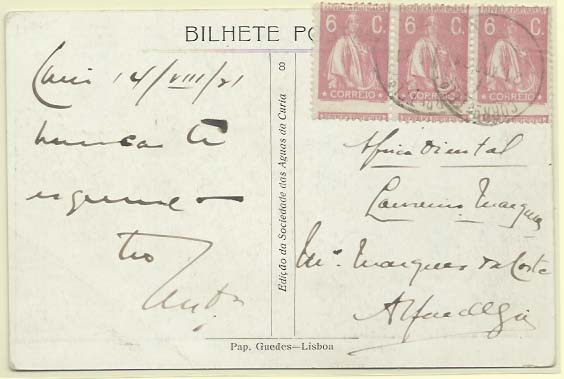 BILHETE PO
6 C. 6 C. 6 C.
CORREIO CORREIO CORREIO
14/VIII/21
nunca te
tio
8
Edição da Sociedade das Aguas da Curia
Africa Oriental
Lourenço Marques
Mª. Marques da Costa
Pap. Guedes—Lisboa